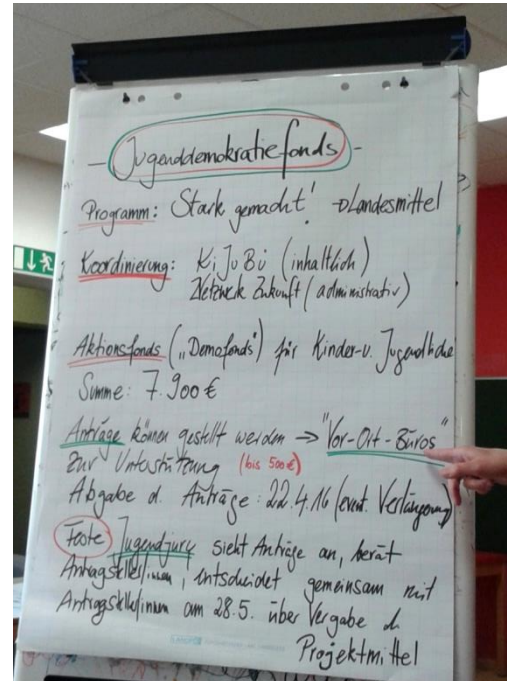 - Jugenddemokratiefonds -
Programm: Stark gemacht! → Landesmittel
Koordinierung: KiJuBü (inhaltlich)
Netzwerk Zukunft (administrativ)
Aktionsfonds („Demofonds“) für Kinder-u. Jugendliche
Summe: 7.900 €
Anträge können gestellt werden → "Vor-Ort-Büros"
zur Unterstützung (bis 500€)
Abgabe d. Anträge: 22.4.16 (event. Verlängerung)
Feste Jugendjury sieht Anträge an, berät
Antragsteller/innen, entscheidet gemeinsam mit
Antragsteller/innen am 28.5. über Vergabe d.
Projektmittel